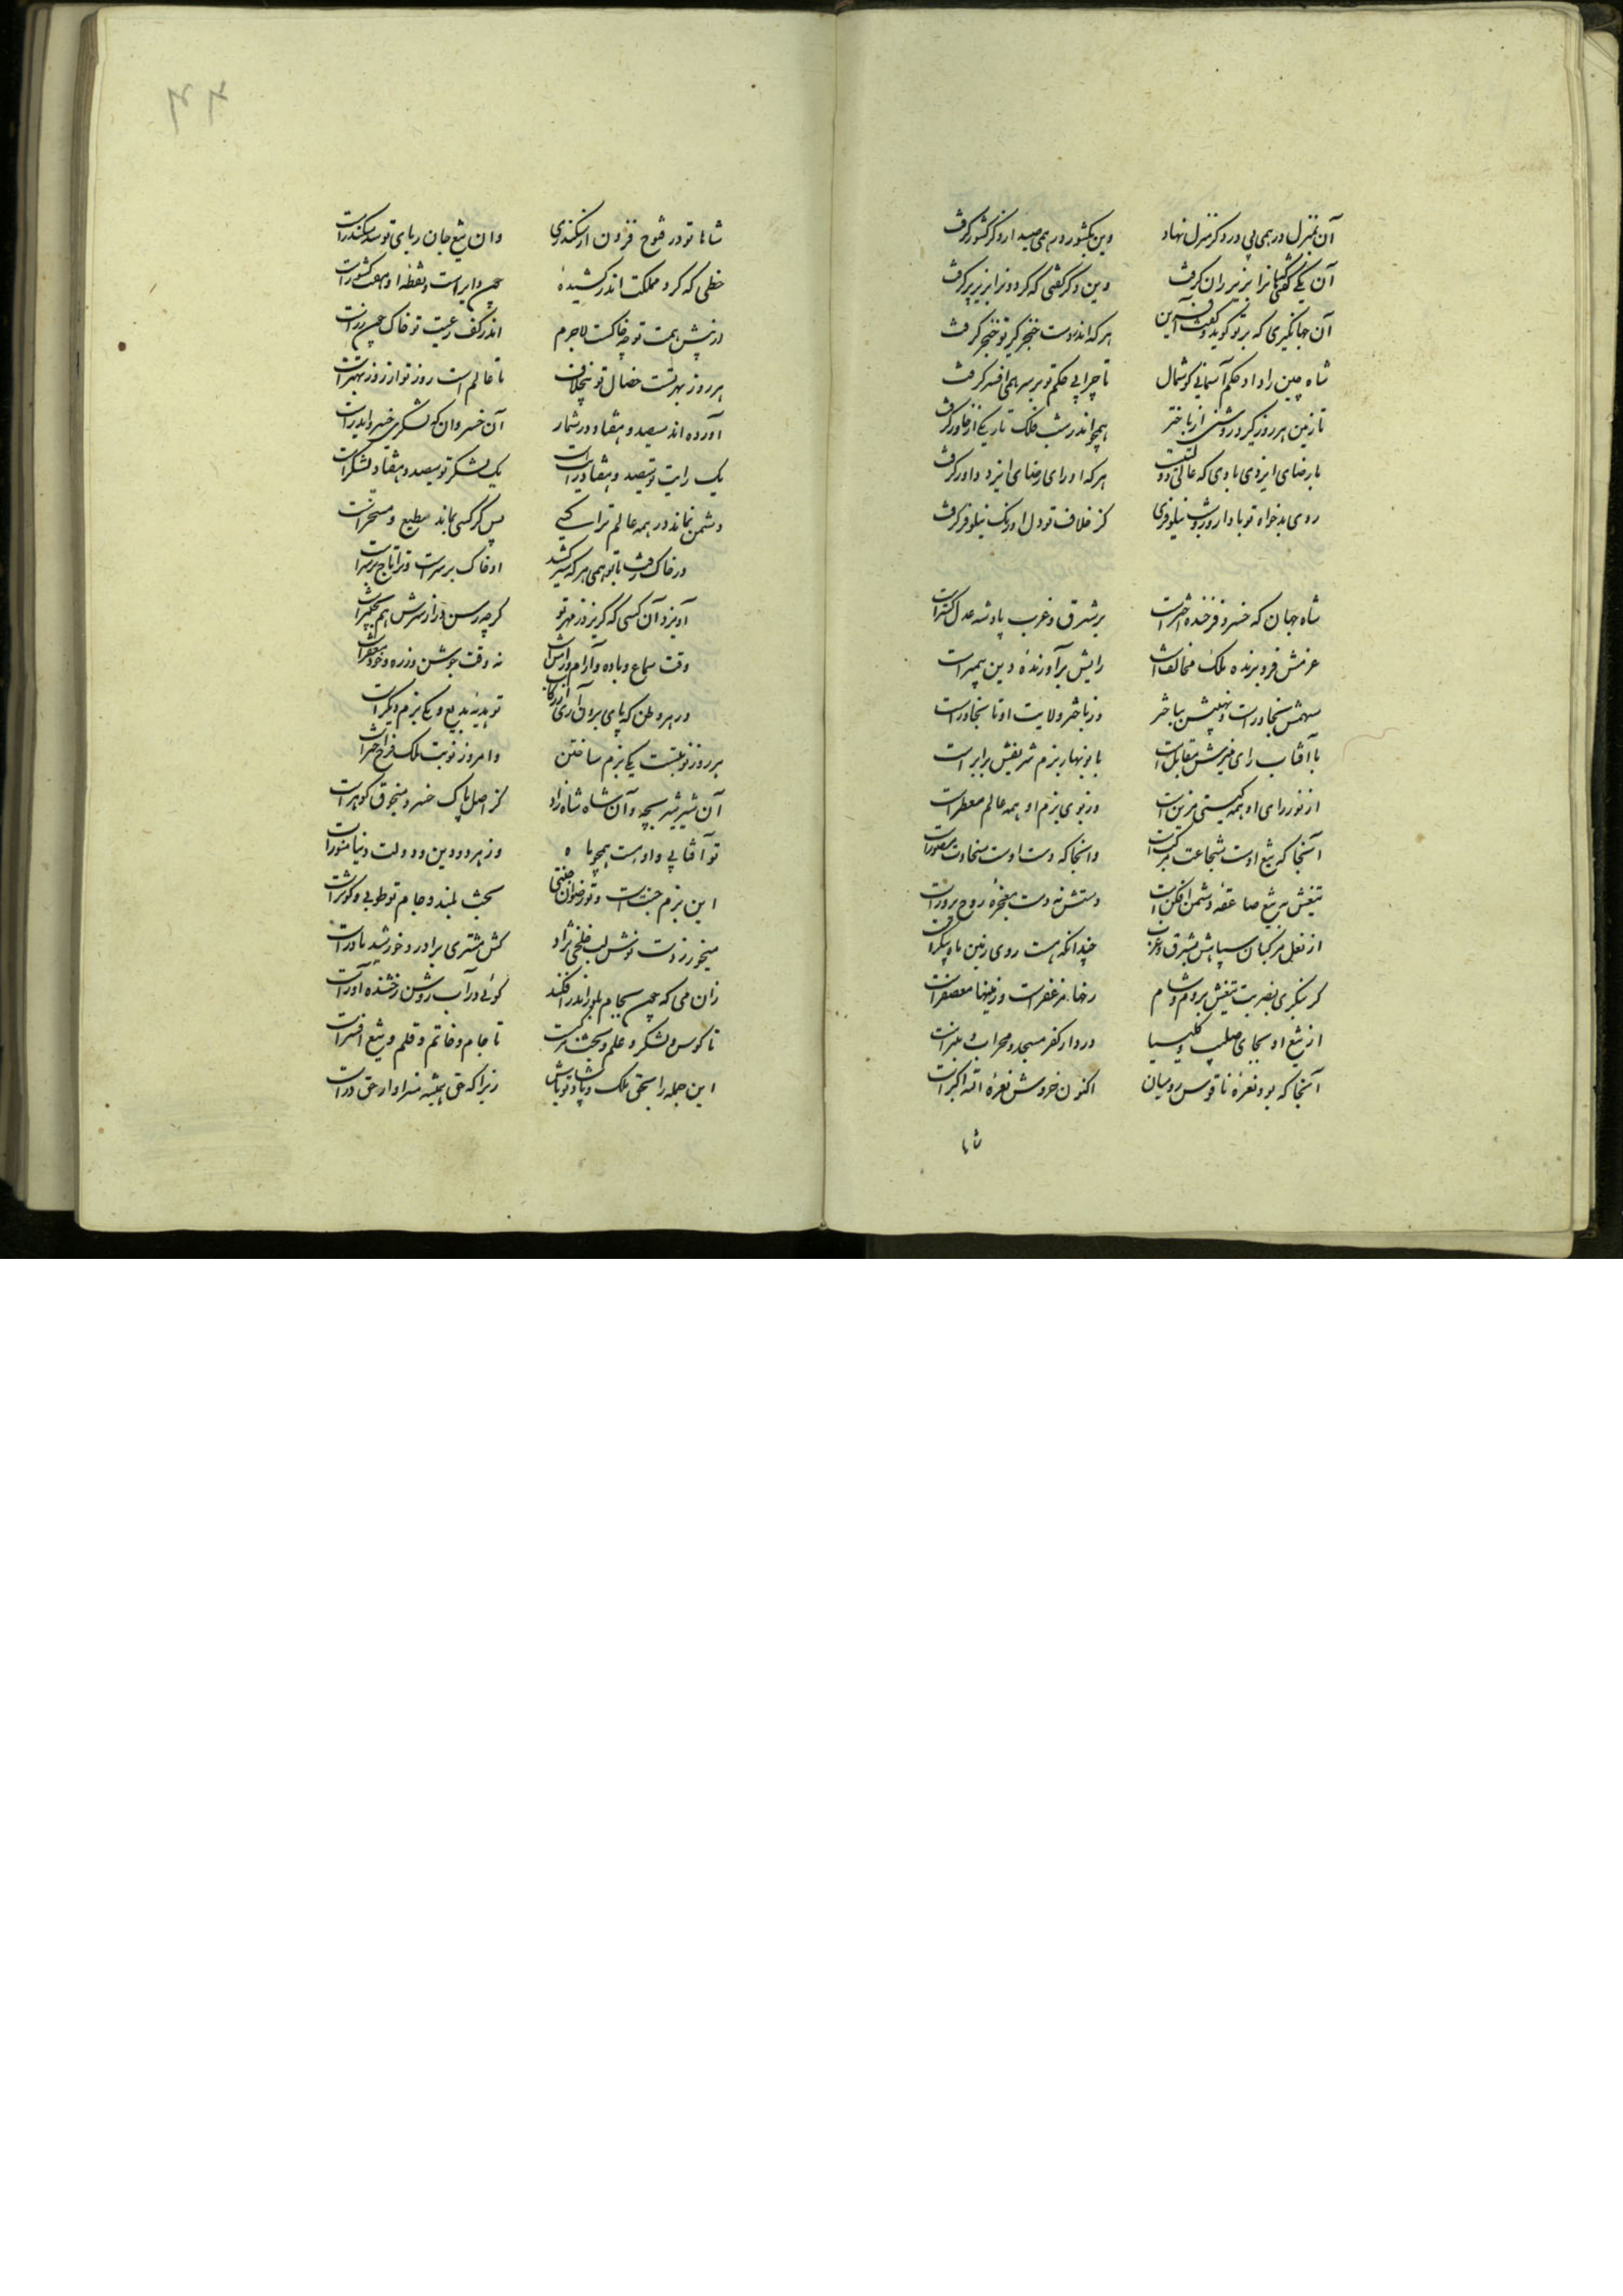 آن بمنزل در همی پی در دگر منزل نهاد وین بکشور در همی صید از دگر کشور گرفت
آن یکی گفتی هنر را بزیر ران گرفت وین دگر گفتی که گردون را بزیر پر گرفت
آن جهانگیری که بر تو گوید و گفت آفرین هر که اندر دست خنجر گیر تو خنجر گرفت
شاه چین را داد حکم آسمانی گوشمال تا چرا بی حکم تو بر سر همی افسر گرفت
تا زمین هر روز گیرد روشنی از باختر همچو اندر شب فلک تاریکی از خاور گرفت
با رضای ایزدی بادی که عالی دولتت هر که او رای رضای ایزد داور گرفت
روی بدخواه تو بادا روز و شب نیلوفری کز خلاف تو دل او رنگ نیلوفر گرفت
شاه جهان که خسرو فرخنده اخترست بر شرق و غرب پادشه عدل گسترست
عزمش فرو برنده ملک مخالفست رایش برآورنده دین پیمبرست
سهمش بخاورست و نهیبش بباختر وز باختر ولایت او تا بخاورست
با آفتاب رای منیرش مقابلست با نوبهار بزم شریفش برابرست
از نور رای او همه گیتی مزینست وز بوی بزم او همه عالم معطرست
آنجا که تیغ اوست شجاعت مرکبست وانجا که دست اوست سخاوت مصورست
تیغش نه تیغ صاعقه دشمن افکنست دستش نه دست معجزه روح پرورست
از نعل مرکبان سپاهش بشرق و غرب چندانکه هست روی زمین ماه پیکرست
گر بنگری بضربت تیغش بروم و شام رخها مزعفرست و زمینها معصفرست
از تیغ او بجای صلیب و کلیسیا در دار کفر مسجد و محراب و منبرست
آنجا که بود نعره ناقوس رومیان اکنون خروش نعره الله اکبرست
شاها
شاها تو در فتوح فزون از سکندری وان تیغ جان ربای تو سد سکندرست
خطی که گرد مملکت اندر کشیده چون دایرست و نقطه او هفت کشورست
در پیش همت تو چو خاکست لاجرم اندر کف رعیت تو خاک چون زرست
هر روز بهترست خصال تو بیخلاف تا عالم است روز تو از روز بهترست
آورده اند سیصد و هفتاد در شمار آن خسروان که لشکری خسرو ایدرست
یک رایت تو سیصد و هفتاد رایتست یک لشکر تو سیصد و هفتاد لشکرست
دشمن نماند در همه عالم ترا کسی پس گر کسی بماند مطیع و مسخرست
در خاک رفت با تو همی هر که سر کشد او خاک بر سرست و ترا تاج بر سرست
آویزد آن کسی که گریزد ز مهر تو گرچه رسن دراز سرش هم بچنبرست
وقت سماع و باده و آرام و رامش است نه وقت جوشن و زره و خود و مغفرست
در هر وطن که پای
تو بدیه بدیع و یکی بزم دیگرست
هر روز نوبتست یکی بزم ساختن وامروز نوبت ملک فرخ اخترست
آن شیر شیر بچه و آن شاه شاه زاد کز اصل پاک خسرو سنجوق گوهرست
تو آفتابی و او هست همچو ماه وز هر دو دین و دولت و دنیا منورست
این بزم جنتست و تو رضوان جنتی بخت بلند و جام تو طوبی و کوثرست
میخور ز دست نوش لب خلخی نژاد کش مشتری برادر و خورشید مادرست
زان می که چون بجام بلور اندر افکند گوئی در آب روشن رخشنده آذرست
تا کوس و لشکر و علم و بخت و تا جام و خاتم و قلم و تیغ افسرست
این جمله را بحق ملک و پادشا تو باش زیرا که حق همیشه سزاوار حق درست